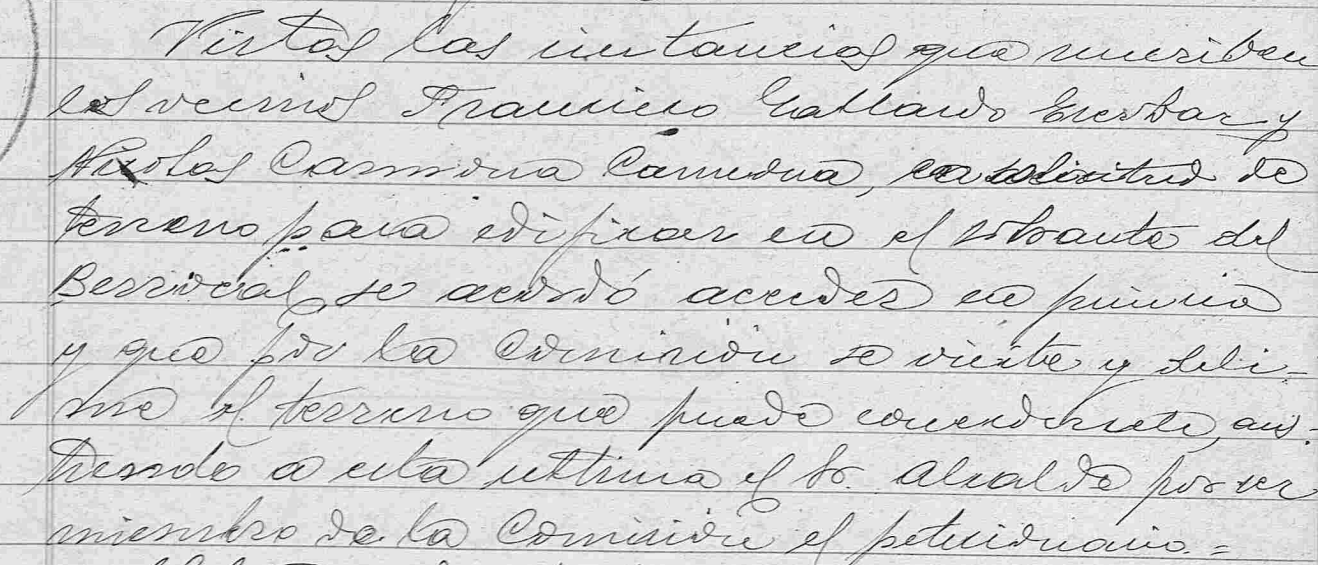 Vistas las instancias que suscriben
los vecinos Francisco Gallardo Escobar y
Nicolas Carmona Carmona, en solicitud de
terreno para edificar en el sobrante del
Berrocal se acordó acceder en principio
y que por la Comisión se visite y deli-
mite el terreno que puede concedersele, asis-
tiendo a esta ultima el Sr. Alcalde por ser
miembro de la Comisión el peticionario.=